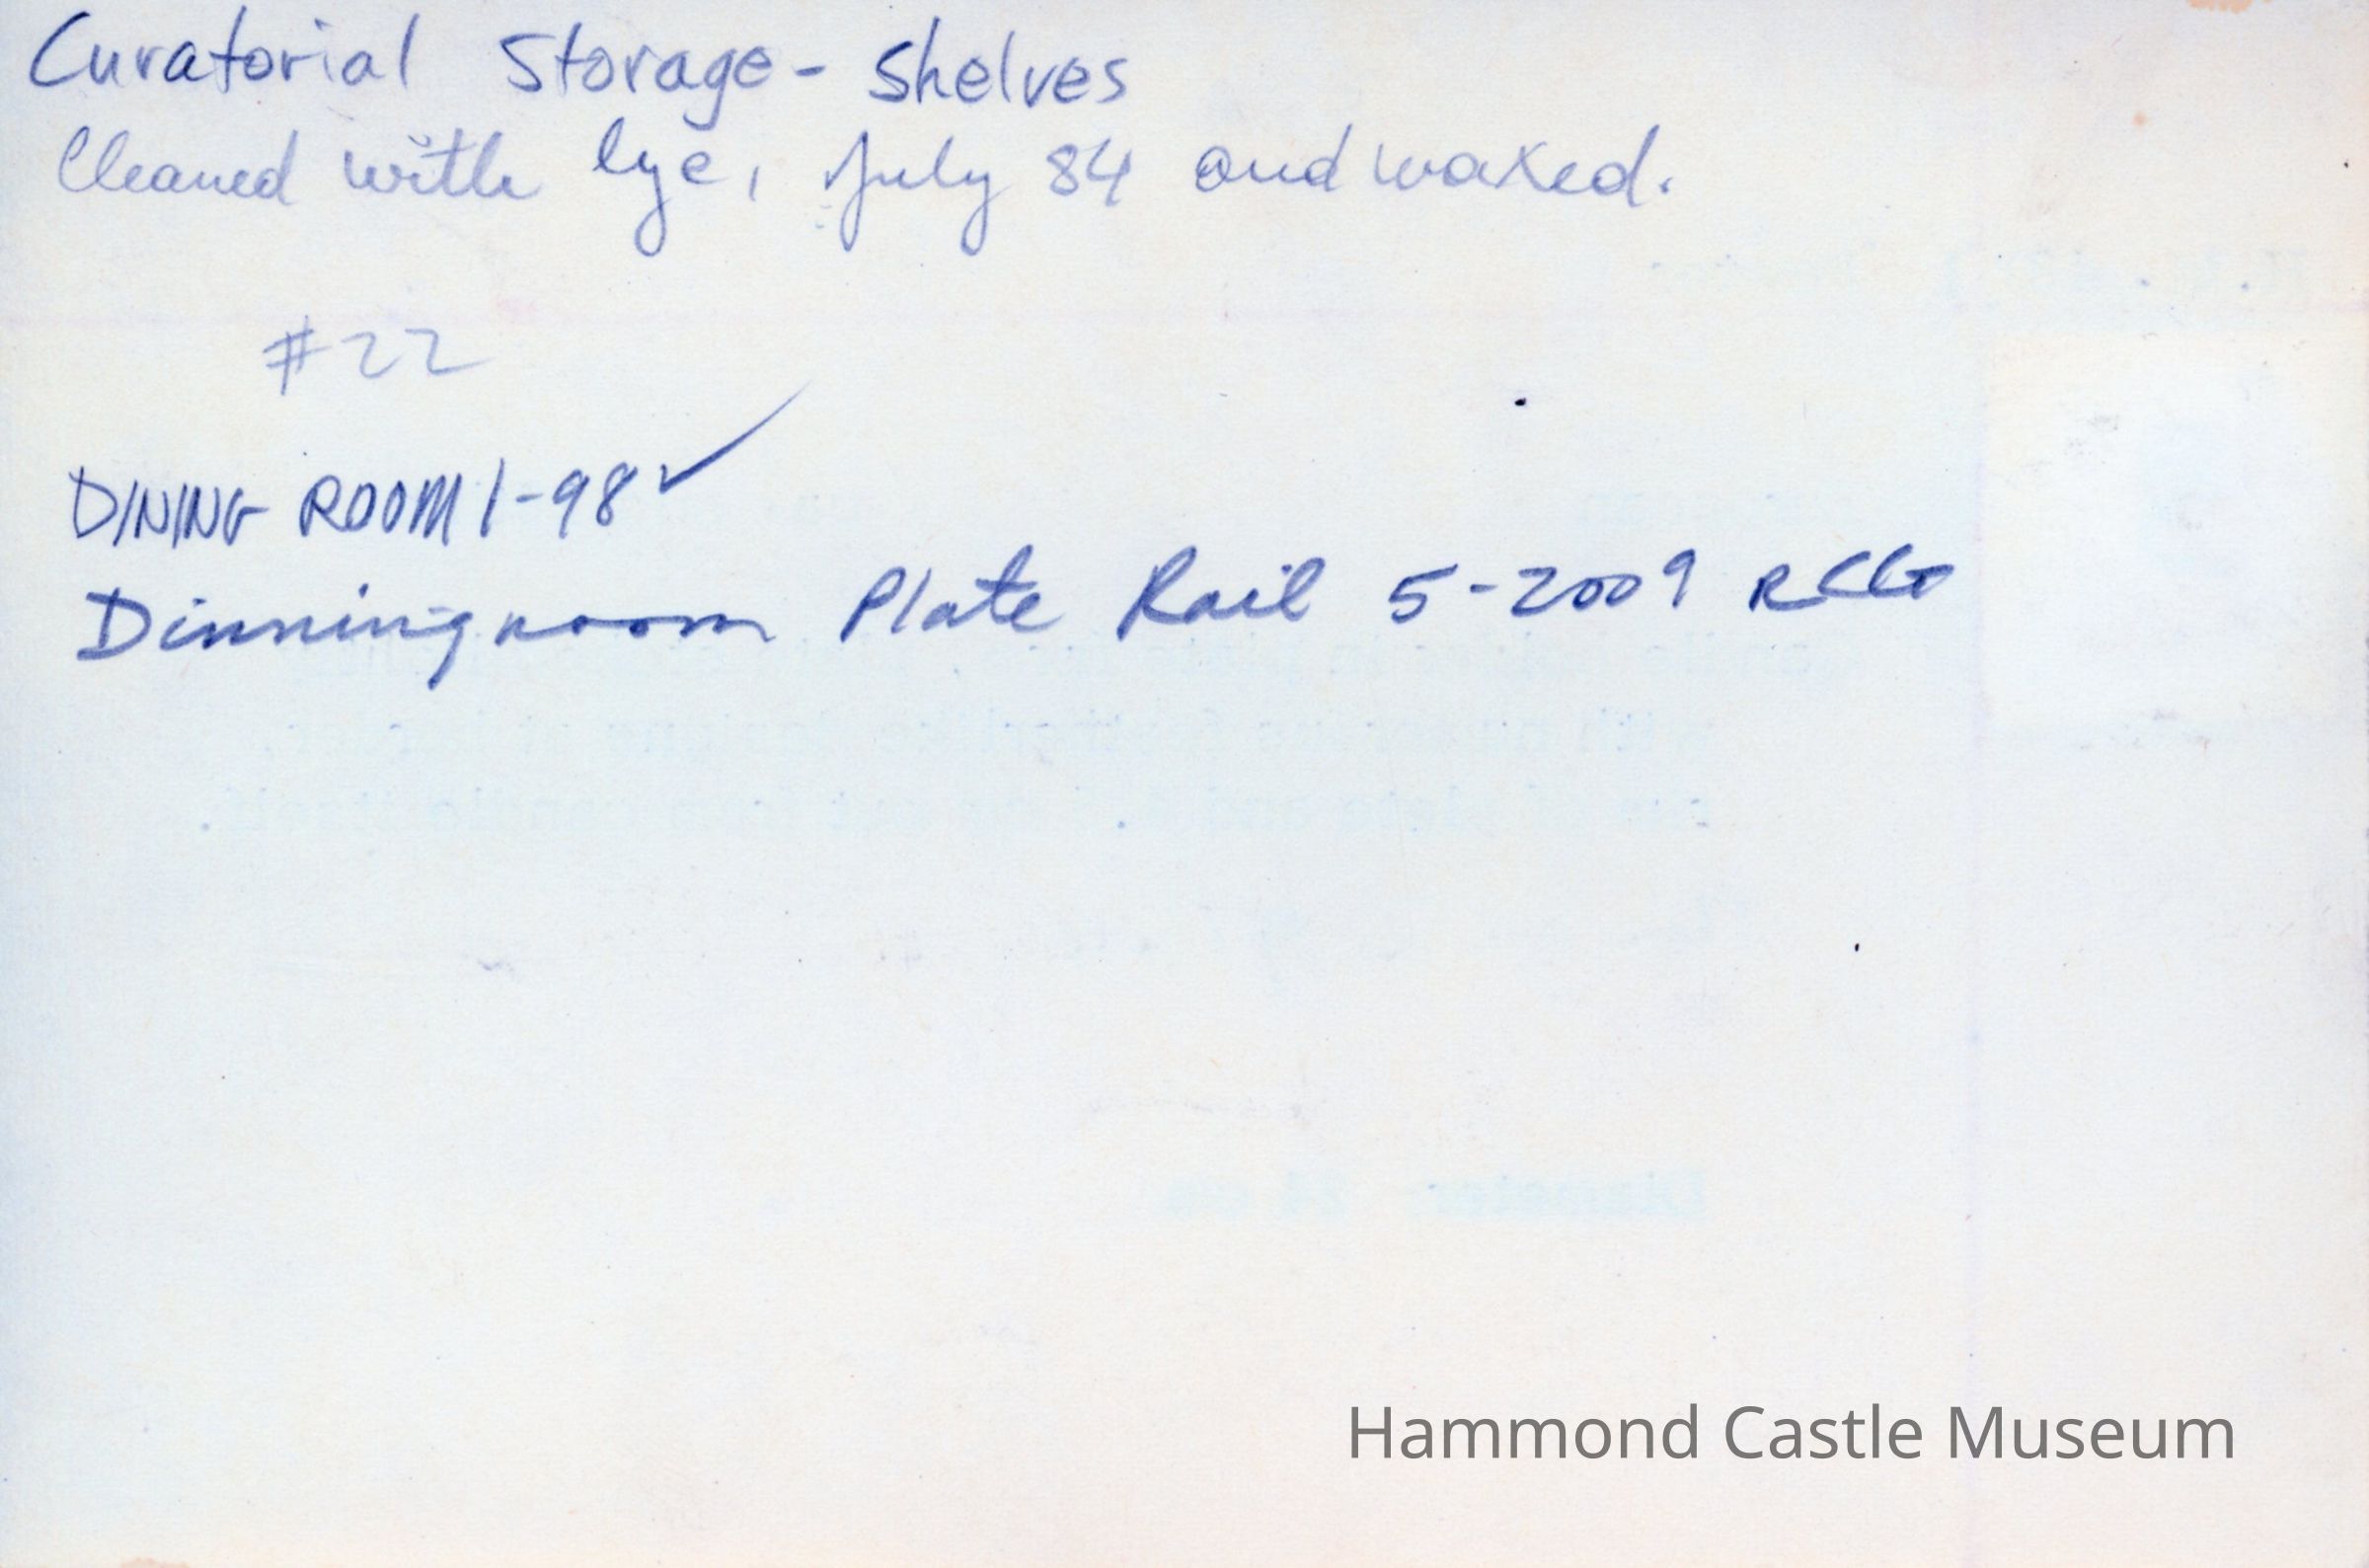 Curatorial Storage - Shelves
Cleaned with lye, July 84 and waxed.
#22
DINING ROOM 1-98 ✓
Dinning room Plate Rail 5-2009
Diameter 24 cm
Hammond Castle Museum